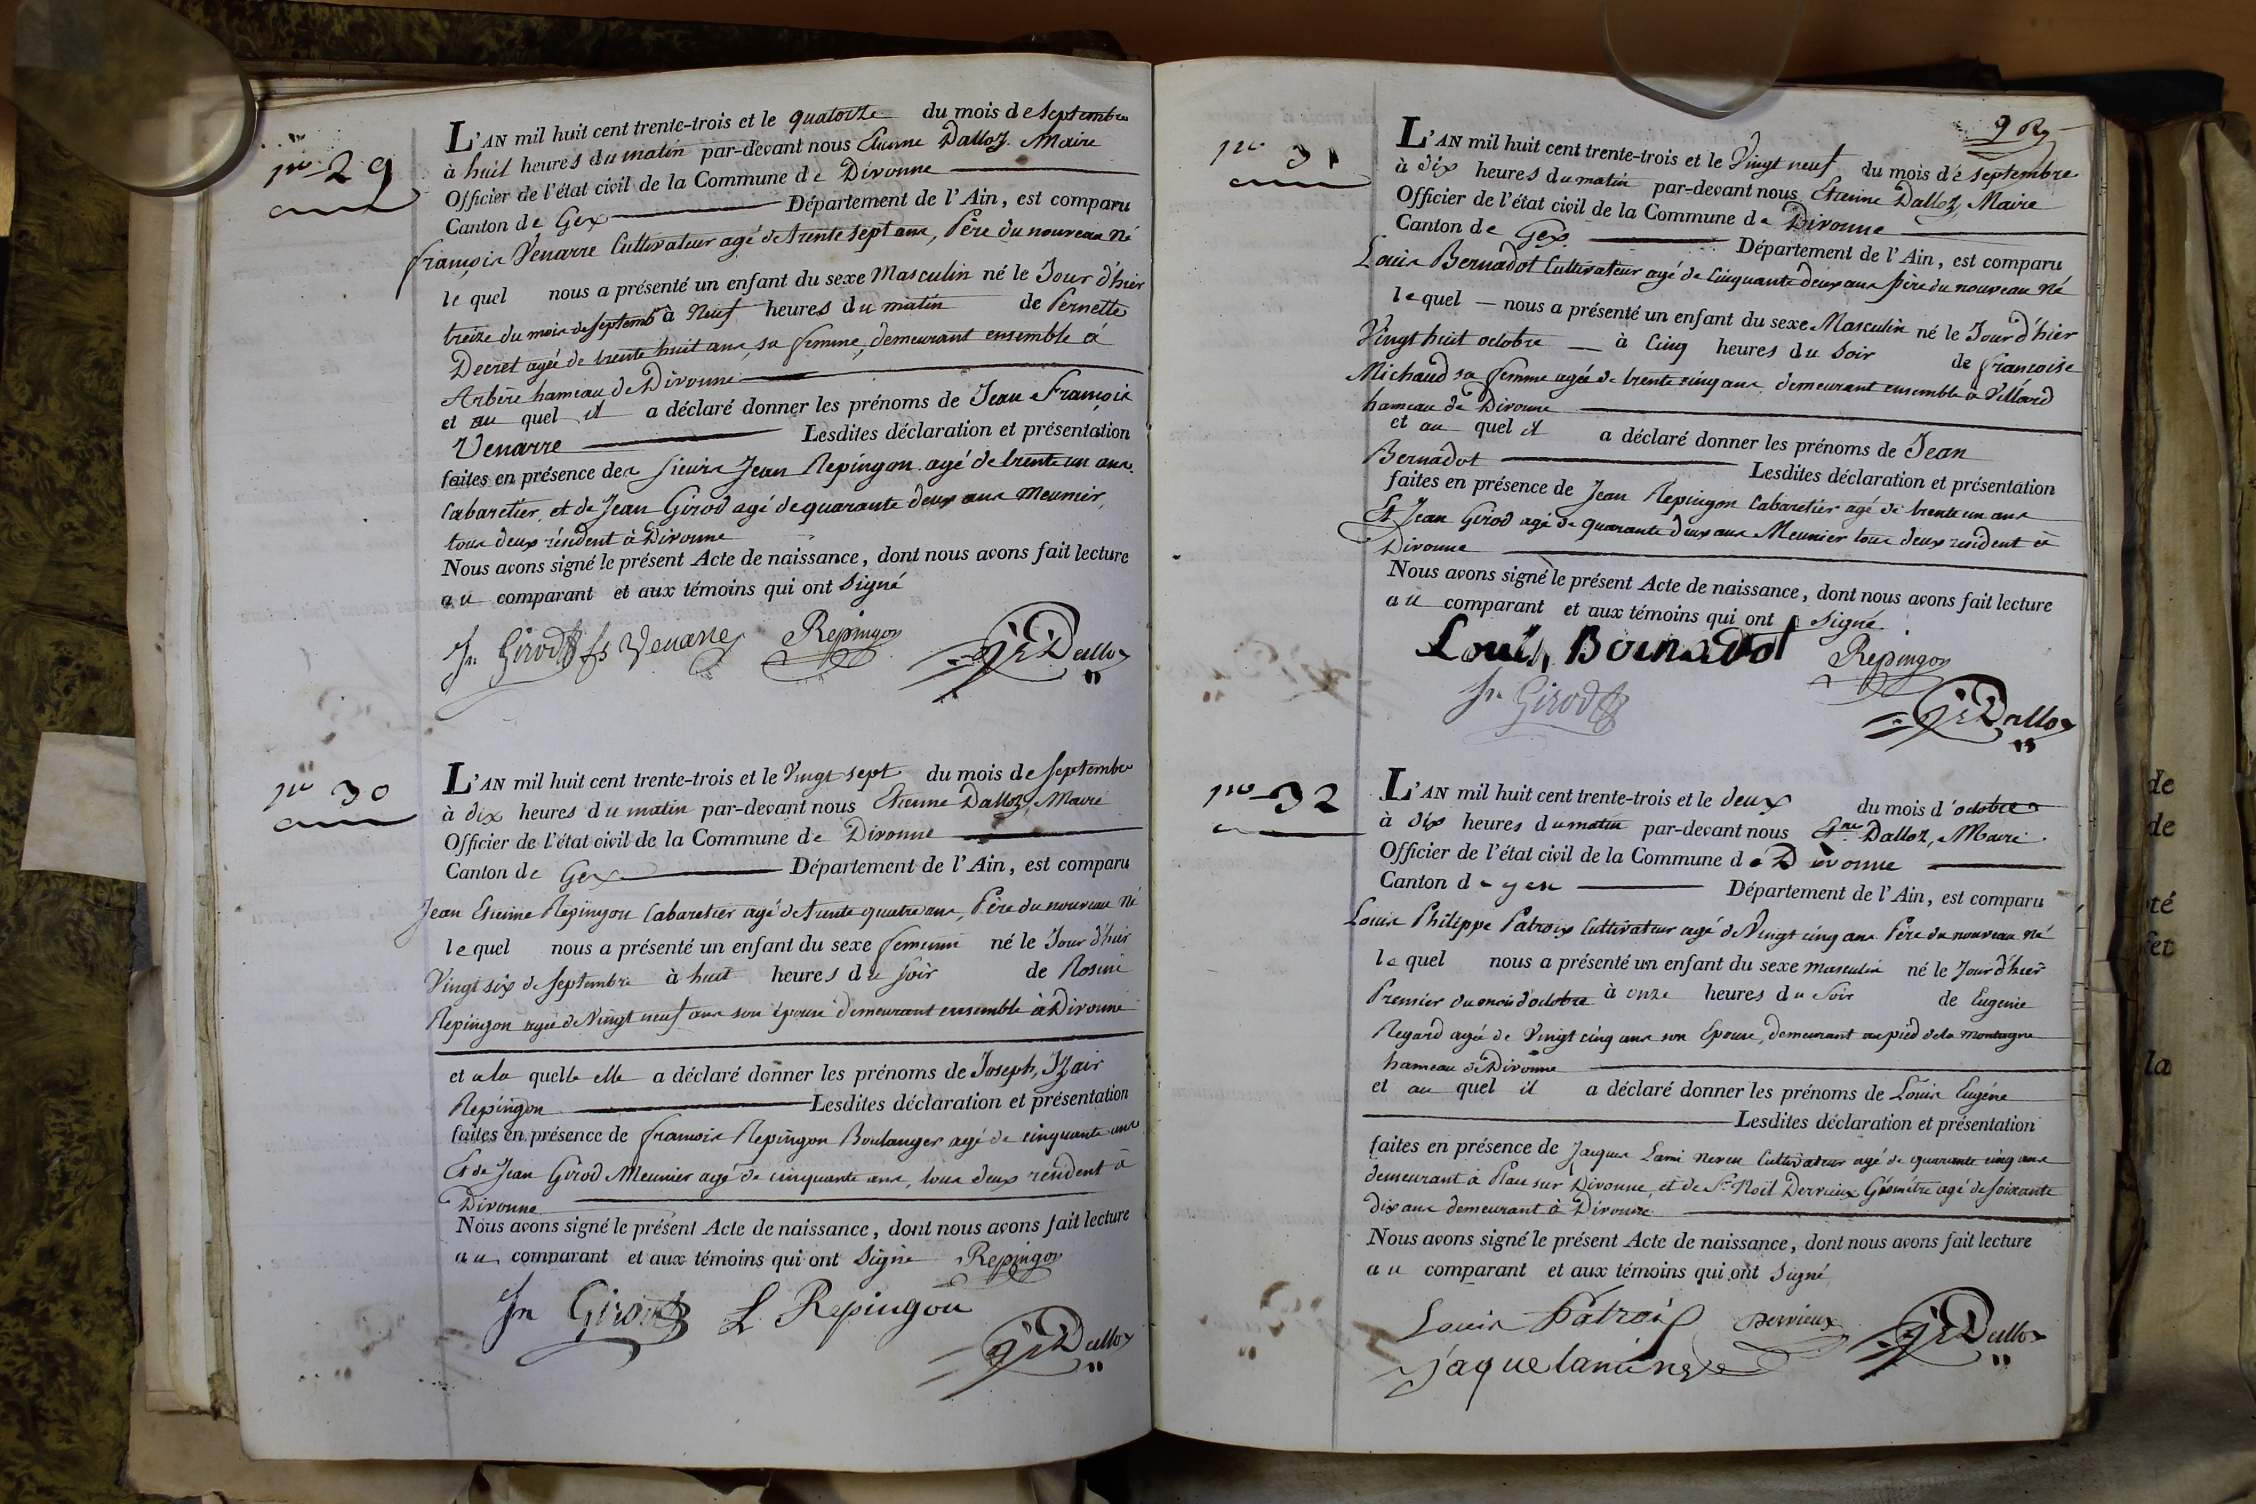 nro 29
L'AN mil huit cent trente-trois et le quatorze du mois de septembre
à huit heures du matin par-devant nous Etienne Dalloz Maire
Officier de l'état civil de la Commune de Divonne
Canton de Gex Département de l'Ain, est comparu
françois Venarre Cultivateur agé de trente sept ans, Père du nouveau Né
le quel nous a présenté un enfant du sexe Masculin né le Jour d'hier
treize du mois de septemb à Neuf heures du matin de Pernette
Decret agée de trente huit ans, sa femme, demeurant ensemble à
Arbère hameau de Divonne
et au quel il a déclaré donner les prénoms de Jean François
Venarre Lesdites déclaration et présentation
faites en présence des sieurs Jean Repingon agé de trente un ans
Cabaretier, et de Jean Girod agé de quarante deux ans Meunier,
tous deux résident à Divonne
Nous avons signé le présent Acte de naissance, dont nous avons fait lecture
au comparant et aux témoins qui ont signé
Jn Girod fs Venarre Repingon Dalloz
nro 30
L'AN mil huit cent trente-trois et le Vingt sept du mois de septembre
à dix heures du matin par-devant nous Etienne Dalloz, Maire
Officier de l'état civil de la Commune de Divonne
Canton de Gex Département de l'Ain, est comparu
Jean Etienne Repingon Cabaretier agé de trente quatre ans, Père du nouveau Né
le quel nous a présenté un enfant du sexe feminin né le Jour d'hier
Vingt six de septembre à huit heures du soir de Rosine
Repingon agée de Vingt neuf ans son épouse demeurant ensemble à Divonne
et a la quelle elle a déclaré donner les prénoms de Joseph, Izair
Repingon Lesdites déclaration et présentation
faites en présence de francois Repingon Boulanger agé de cinquante ans
Et de Jean Girod Meunier agé de cinquante ans, tous deux résident à
Divonne
Nous avons signé le présent Acte de naissance, dont nous avons fait lecture
au comparant et aux témoins qui ont signé Repingon
Jn Girod L Repingon
Dalloz
nro 31
L'AN mil huit cent trente-trois et le Vingt neuf du mois de septembre
à dix heures du matin par-devant nous Etienne Dalloz, Maire
Officier de l'état civil de la Commune de Divonne
Canton de Gex Département de l'Ain, est comparu
Louis Bernadot Cultivateur agé de Cinquante deux ans père du nouveau Né
le quel nous a présenté un enfant du sexe Masculin né le Jour d'hier
Vingt huit octobre à Cinq heures du Soir de francoise
Michaud sa femme agée de trente cinq ans demeurant ensemble à Villard
hameau de Divonne
et au quel il a déclaré donner les prénoms de Jean
Bernadot Lesdites déclaration et présentation
faites en présence de Jean Repingon Cabaretier agé de trente un ans
Et Jean Girod agé de quarante deux ans Meunier tous deux résident à
Divonne
Nous avons signé le présent Acte de naissance, dont nous avons fait lecture
au comparant et aux témoins qui ont signé
Louis Bernadot Repingon
Jn Girod Dalloz
nro 32
L'AN mil huit cent trente-trois et le deux du mois d'octobre
à dix heures du matin par-devant nous Etne Dalloz, Maire
Officier de l'état civil de la Commune de Divonne
Canton de gex Département de l'Ain, est comparu
Louis Philippe Patroix Cultivateur agé de Vingt cinq ans Père du nouveau né
le quel nous a présenté un enfant du sexe masculin né le Jour d'hier
Premier du mois d'octobre à onze heures du soir de Eugenie
Regard agée de Vingt cinq ans son Epouse, demeurant au pied de la montagne
hameau de Divonne
et au quel il a déclaré donner les prénoms de Louis Eugéne
Lesdites déclaration et présentation
faites en présence de Jaques Lami neveu Cultivateur agé de quarante cinq ans
demeurant à Plan sur Divonne, et de Sr Noël Dervieux Géométre agé de soixante
dix ans demeurant à Divonne
Nous avons signé le présent Acte de naissance, dont nous avons fait lecture
au comparant et aux témoins qui ont signé
Louis Patroix Dervieux Dalloz
de
de
té
et
la